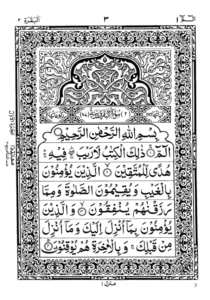 البقرة ٢
٣
الٓمّٓ ١
بِسْمِ اللهِ الرَّحْمٰنِ الرَّحِيْمِ
الٓمّٓ ۚ ذٰلِكَ الْكِتٰبُ لَا رَيْبَ ۛ فِيْهِ ۛ
هُدًى لِّلْمُتَّقِيْنَ ۙ الَّذِيْنَ يُؤْمِنُوْنَ
بِالْغَيْبِ وَيُقِيْمُوْنَ الصَّلٰوةَ وَمِمَّا
رَزَقْنٰهُمْ يُنْفِقُوْنَ ۙ وَالَّذِيْنَ
يُؤْمِنُوْنَ بِمَآ اُنْزِلَ اِلَيْكَ وَمَآ اُنْزِلَ
مِنْ قَبْلِكَ ۚ وَبِالْاٰخِرَةِ هُمْ يُوْقِنُوْنَ